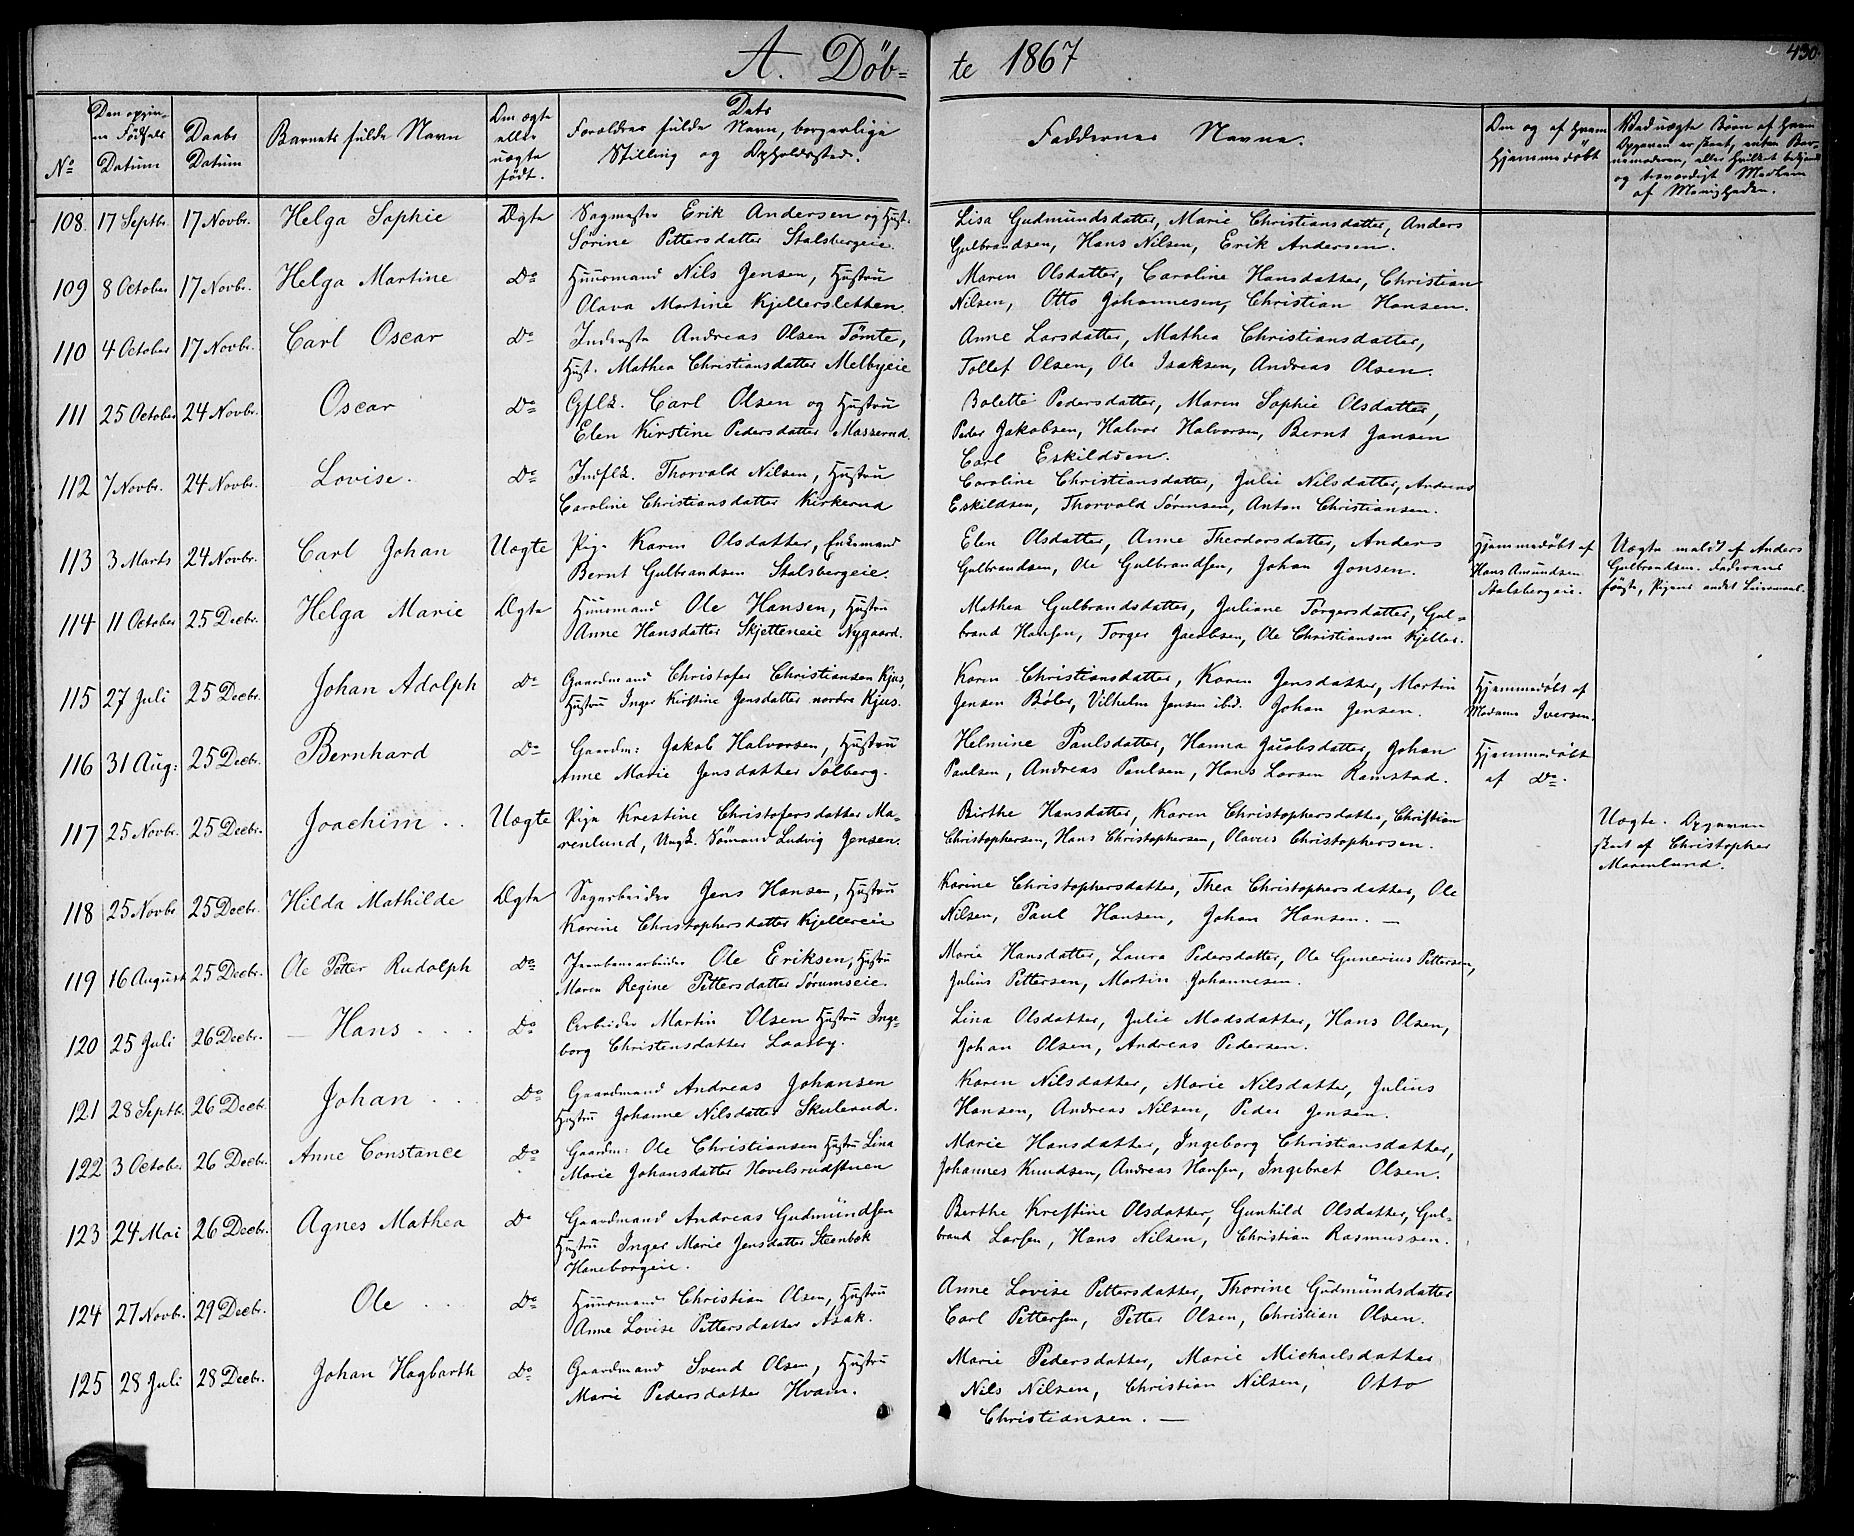 A. Döb= te 1867
430
No
Den opgivne Fødsels Datum
Daabs Datum
Barnets fulde Navn
Om ægte eller uægte født.
Dets Forældres fulde Navn, borgerlige Stilling og Opholdssted.
Faddernes Navne.
Om og af hvem hjemmedøbt
Ved uægte Børn af hvem Opgaven er skeet, enten Barnemoderen, eller hvilket bekjendt og troværdigt Medlem af Menigheden.
108. 17 Septbr. 17 Novbr. Helga Sophie Ægte Sagmester Erik Andersen og Hust. Lisa Gudmundsdatter, Marie Christiansdatter, Anders
Sørine Pettersdatter Stalsbergeie. Gulbrandsen, Hans Nilsen, Erik Andersen.
109 8 October 17 Novbr. Helga Martine Do Huusmand Nils Jensen, Hustru Maren Olsdatter, Caroline Hansdatter, Christian
Olava Martine Kjellersletten. Nilsen, Otto Johannesen, Christian Hansen.
110 4 October 17 Novbr. Carl Oscar Do Inderste Andreas Olsen Tømte, Anne Larsdatter, Mathea Christiansdatter,
Hust. Mathea Christiansdatter Melbyeie Tollef Olsen, Ole Isaksen, Andreas Olsen.
111 25 October 24 Novbr. Oscar Do Gflk. Carl Olsen og Hustru Bolette Pedersdatter, Maren Sophie Olsdatter,
Elen Kirstine Pedersdatter Masserud. Peder Jakobsen, Halvor Halvorsen, Bernt Jansen
Carl Eskildsen.
112 7 Novbr. 24 Novbr. Lovise. Do Indflk. Thorvald Nilsen, Hustru Caroline Christiansdatter, Julie Nilsdatter, Andreas
Caroline Christiansdatter Kirkerud Eskildsen, Thorvald Sørensen, Anton Christiansen.
113 3 Marts 24 Novbr. Carl Johan Uægte Pige Karen Olsdatter, Enkemand Elen Olsdatter, Anne Theodorsdatter, Anders Hjemmedøbt af Uægte meldt af Anders
Bernt Gulbrandsen Stalsbergeie. Gulbrandsen, Ole Gulbrandsen, Johan Jonsen. Hans Amundsen Gulbrandsen. Faderens
Stalsbergeie. første, Pigens andet Leiermaal.
114 11 October 25 Decbr. Helga Marie Ægte Huusmand Ole Hansen, Hustru Mathea Gulbrandsdatter, Juliane Torgersdatter, Gul=
Anne Hansdatter Skjetteneie Nygaard. brand Hansen, Torger Jacobsen, Ole Christiansen Kjeller.
115 27 Juli 25 Decbr. Johan Adolph Do Gaardmand Christofer Christiansen Kjus, Karen Christiansdatter, Karen Jensdatter, Martin Hjemmedøbt af
Hustru Inger Kirstine Jensdatter nordre Kjus. Jensen Bøler, Vilhelm Jensen ibid. Johan Jensen. Madame Iversen.
116 31 Aug: 25 Decbr. Bernhard Do Gaardm: Jakob Halvorsen, Hustru Helmine Paulsdatter, Hanna Jacobsdatter, Johan Hjemmedøbt
Anne Marie Jensdatter Solberg. Paulsen, Andreas Paulsen, Hans Larsen Ramstad. af Do.
117 25 Novbr. 25 Decbr. Joachim Uægte Pige Krestine Christofersdatter Ma= Birthe Hansdatter, Karen Christophersdatter, Christian Uægte. Opgaven
renlund, Ungk. Sømand Ludvig Jensen. Christophersen, Hans Christophersen, Olavus Christophersen. skeet af Christopher
Marenlund.
118 25 Novbr 25 Decbr. Hilda Mathilde Ægte Sagarbeider Jens Hansen, Hustru Karine Christophersdatter, Thea Christophersdatter, Ole
Karine Christophersdatter Kjellereie Nilsen, Paul Hansen, Johan Hansen. —
119 16 August 25 Decbr. Ole Petter Rudolph Do Jernbanearbeider Ole Eriksen, Hustru Marie Hansdatter, Laura Pedersdatter, Ole Gunerius Pettersen,
Maren Regine Pettersdatter Sørumseie. Julius Pettersen, Martin Johannesen.
120 25 Juli 26 Decbr. — Hans Do Arbeider Martin Olsen Hustru Inge= Lina Olsdatter, Julie Madsdatter, Hans Olsen,
borg Christensdatter Laasby. Johan Olsen, Andreas Pedersen.
121 28 Septbr. 26 Decbr. Johan Do Gaardmand Andreas Johansen Karen Nilsdatter, Marie Nilsdatter, Julius
Hustru Johanne Nilsdatter Skulerud. Hansen, Andreas Nilsen, Peder Jensen.
122 3 October 26 Decbr. Anne Constance Do Gaardm: Ole Christiansen Hustru Lina Marie Hansdatter, Ingeborg Christiansdatter,
Marie Johansdatter Hovelsrudstuen Johannes Knudsen, Andreas Hansen, Ingebret Olsen.
123 24 Mai 26 Decbr. Agnes Mathea Do Gaardmand Andreas Gudmundsen Berthe Kristine Olsdatter, Gunhild Olsdatter, Gul=
Hustru Inger Marie Jensdatter Steenbok brand Larsen, Hans Nilsen, Christian Rasmussen.
Haneborgeie.
124 27 Novbr. 29 Decbr. Ole Do Huusmand Christian Olsen, Hustru Anne Lovise Pettersdatter, Thorine Gudmundsdatter
Anne Lovise Pettersdatter Asak. Carl Pettersen, Petter Olsen, Christian Olsen.
125 28 Juli 28 Decbr. Johan Hagbarth Do Gaardmand Svend Olsen, Hustru Marie Pedersdatter, Marie Michaelsdatter
Marie Pedersdatter Hvam. Nils Nilsen, Christian Nilsen, Otto
Christiansen. —